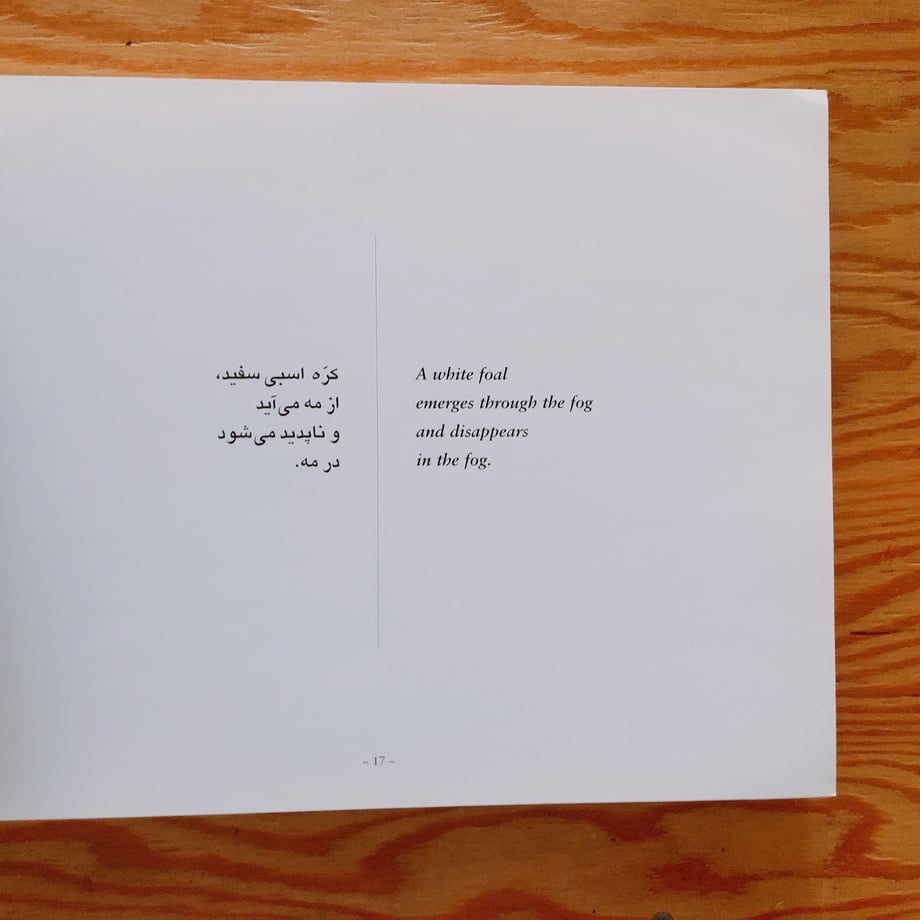 کرّه اسبی سفید،
از مه می‌آید
و ناپدید می‌شود
در مه.
A white foal
emerges through the fog
and disappears
in the fog.
~ 17 ~